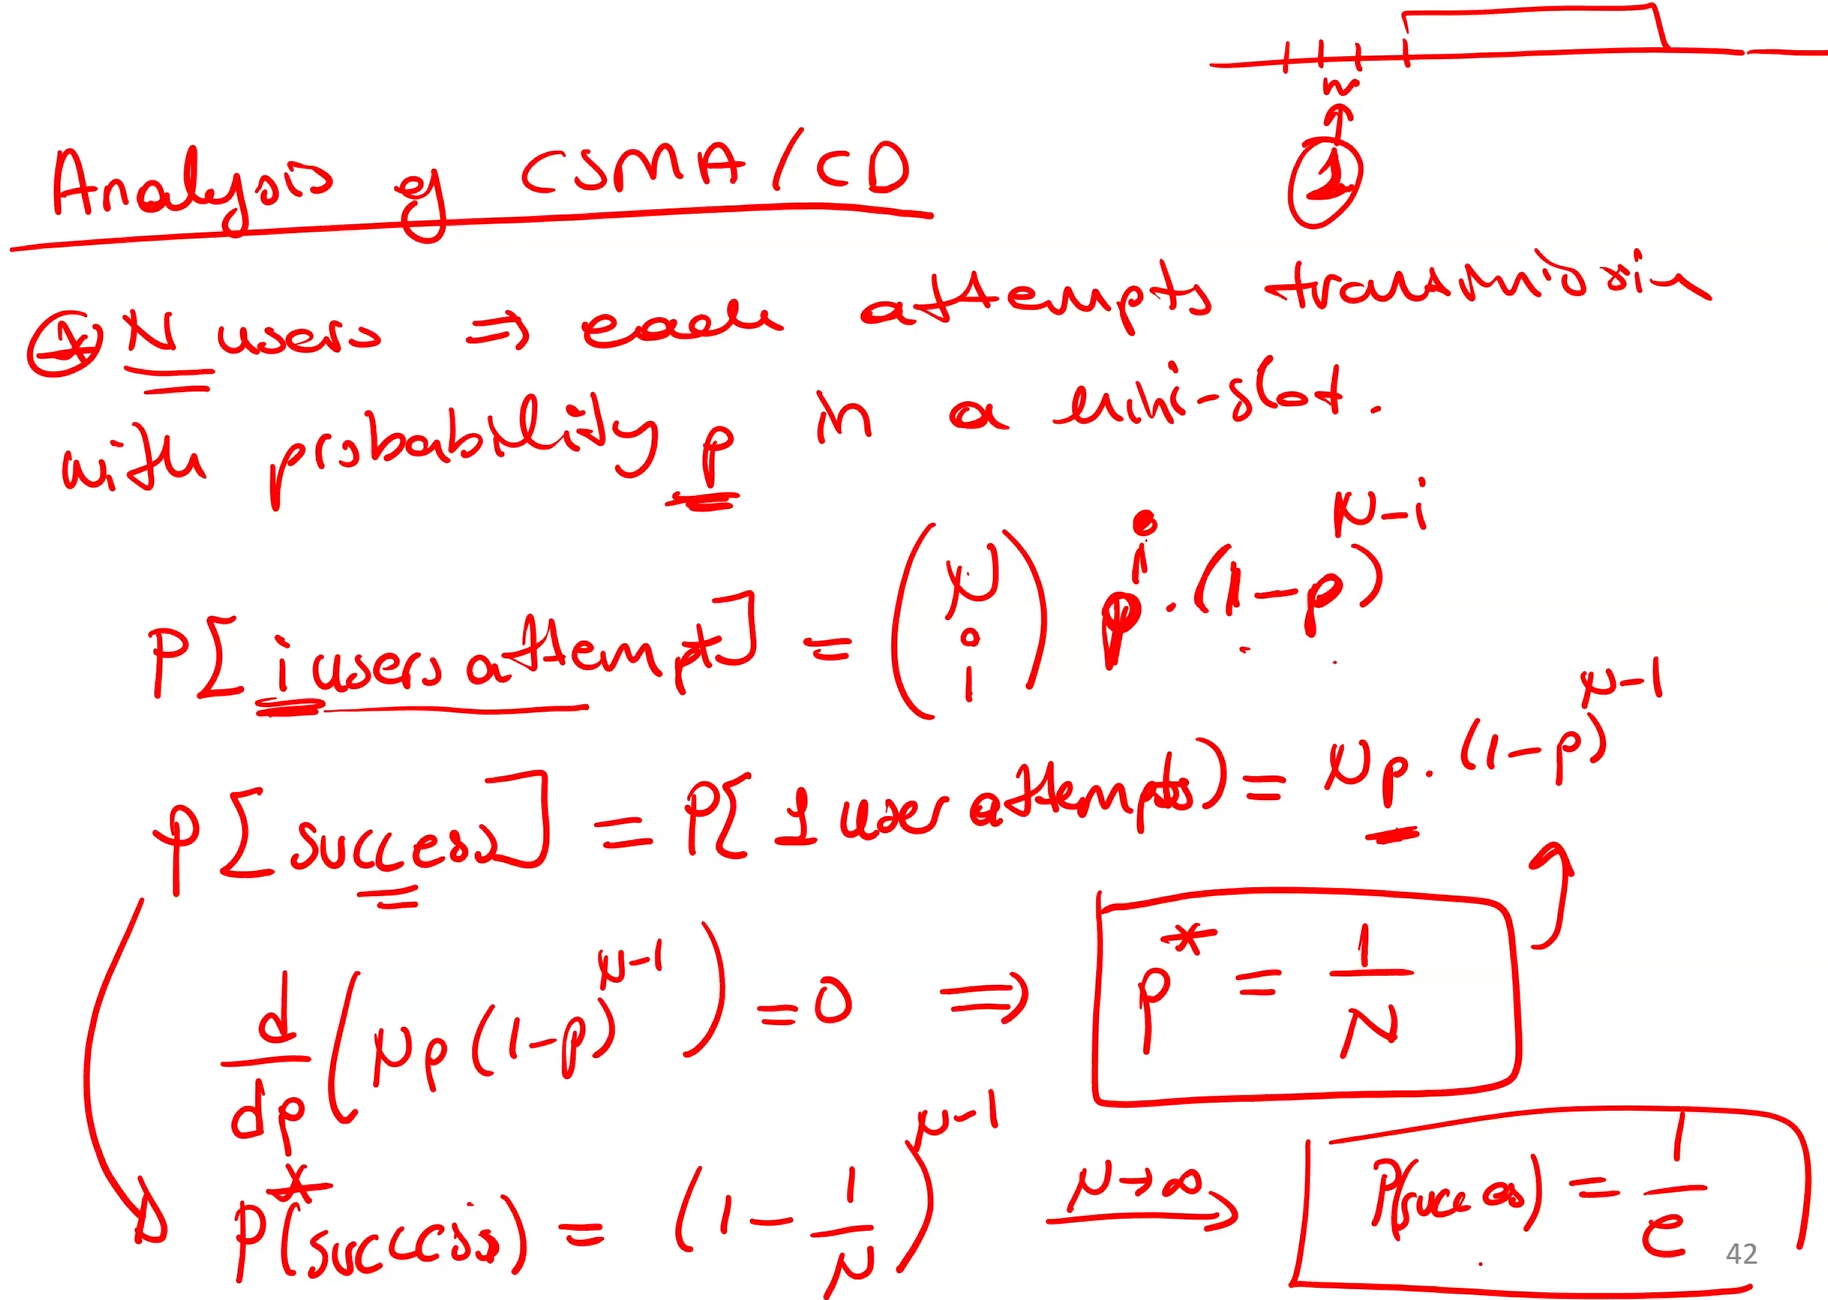 1
Analysis of CSMA/CD
* N users ⇒ each attempts transmission
with probability p in a mini-slot.
P[i users attempt] = (N i) p^i · (1-p)^{N-i}
P[success] = P[1 user attempts) = Np · (1-p)^{N-1}
d/dp (Np(1-p)^{N-1}) = 0 ⇒ p* = 1/N
P*(success) = (1 - 1/N)^{N-1} N→∞ P(success) = 1/e
42